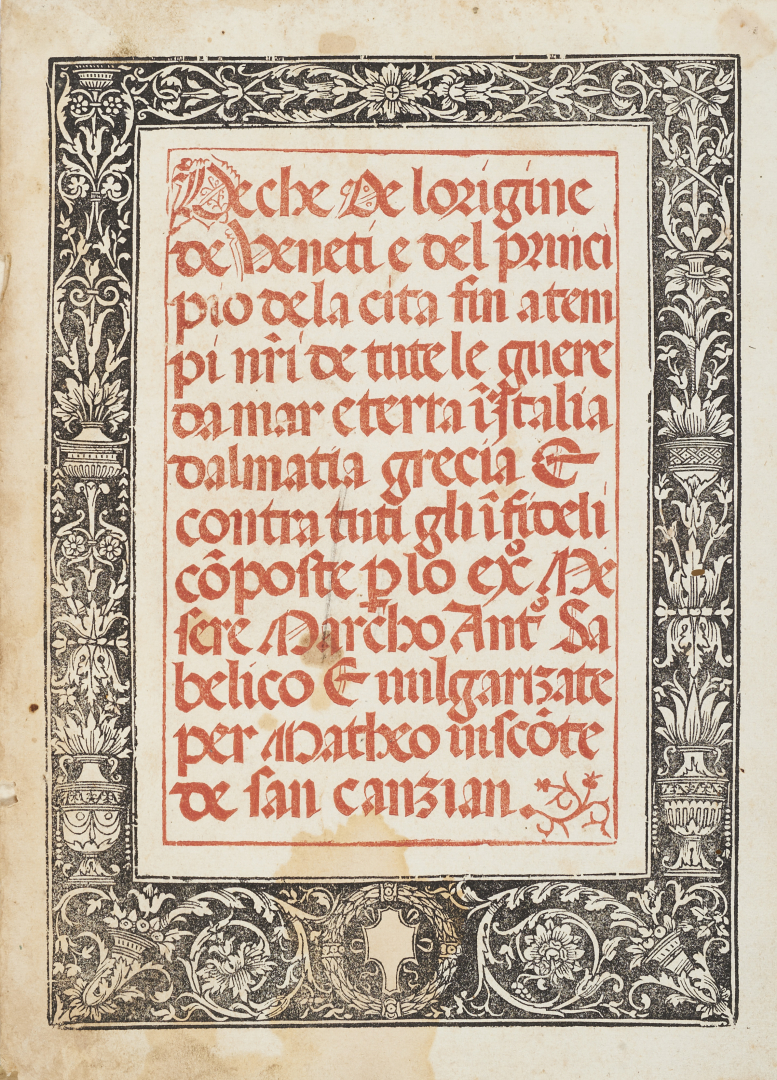 Deche De lorigine
de Veneti e del princi
pio de la cita fin a tem
pi nr̃i de tute le guere
da mar e terra ĩ Italia
dalmatia grecia E
contra tuti gli ĩfideli
cõposte ꝑ lo exᵒ̃ Me
sere Marcho Antᵒ Sa
belico E vulgarizate
per Matheo viscõte
de san canzian